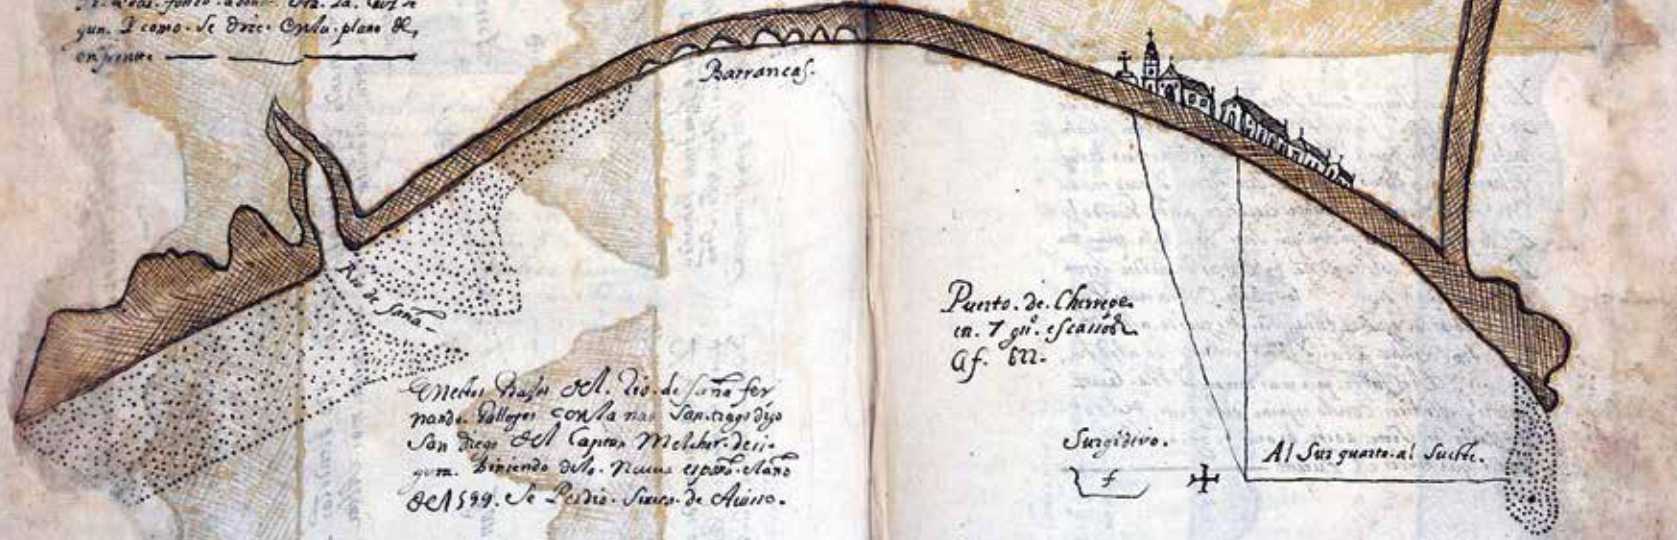 fondo. adonde. Dra. la.
gun. I como. Se dize. Enla. plano de,
enfrente
Barrancas.
Rio de Saña
Puerto. de. Cherrepe.
en. 7 gr.ˢ escassos
af. 622.
Enestos Bajos del. Rio. de saña fer
nando. Gallegos con la nao San-
San Diego del Capitan Melchor. de si
gura. biniendo dela. Nueva españa. el año
del 1599. Se Perdio. Sirva. de Aviso.
Surgidero.
Al Sur quarta. al Sueste.